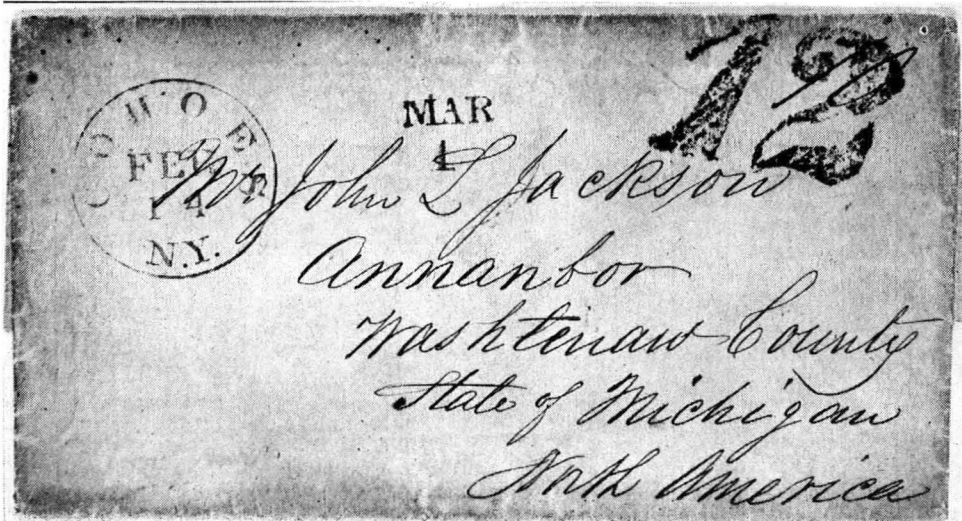 COHOES
FEB
14
N.Y.
MAR
1
12
Mr John L Jackson
Annanbor
Washtenaw County
State of Michigan
North America